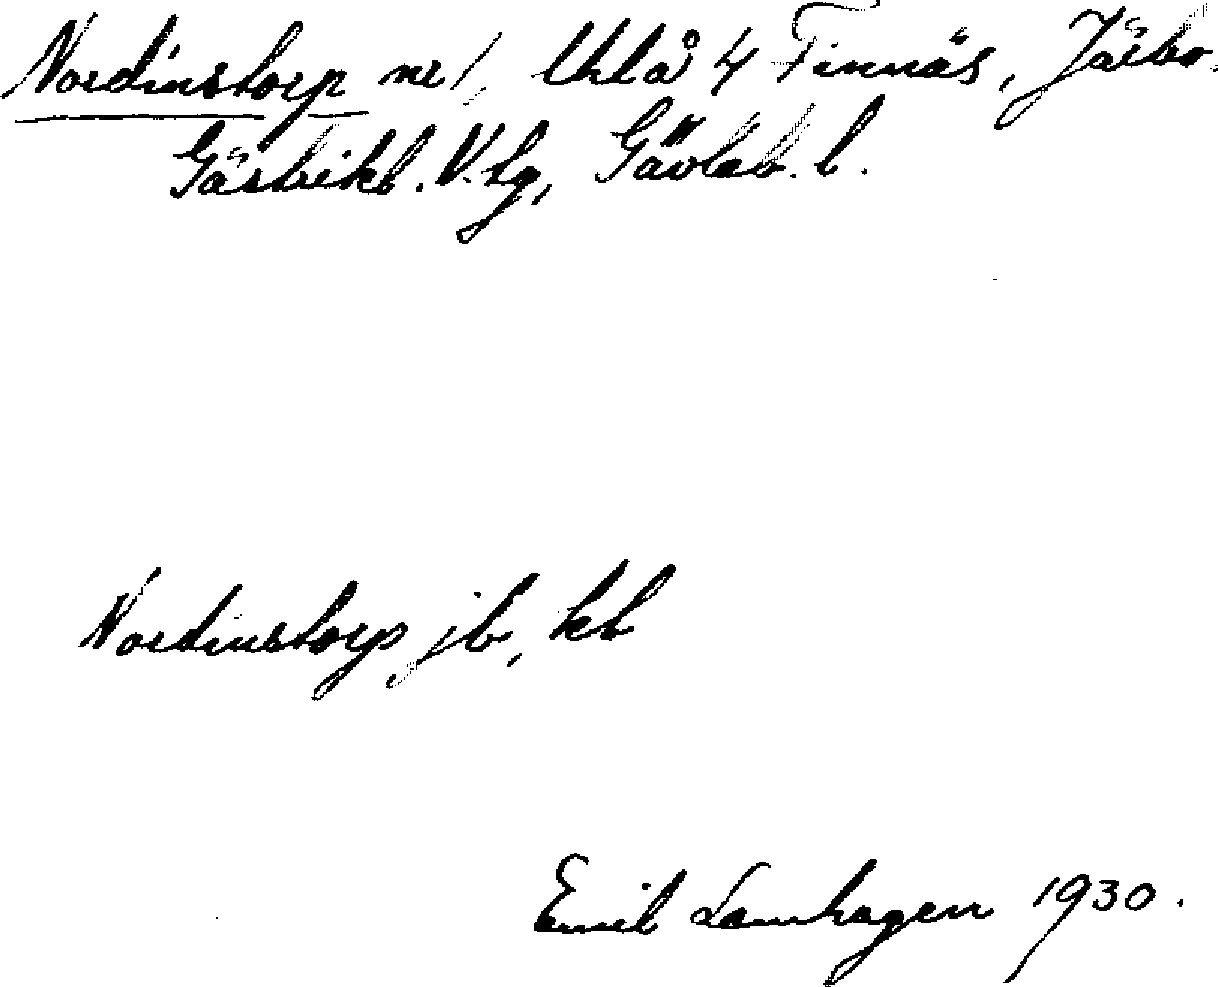 Nordinstorp nr 1, Uhlå 4 Finnäs, Järbo.
Gästrikl. V. tg, Gävleb. l.
Nordinstorp jb, kb
Emil Lamhagen 1930.